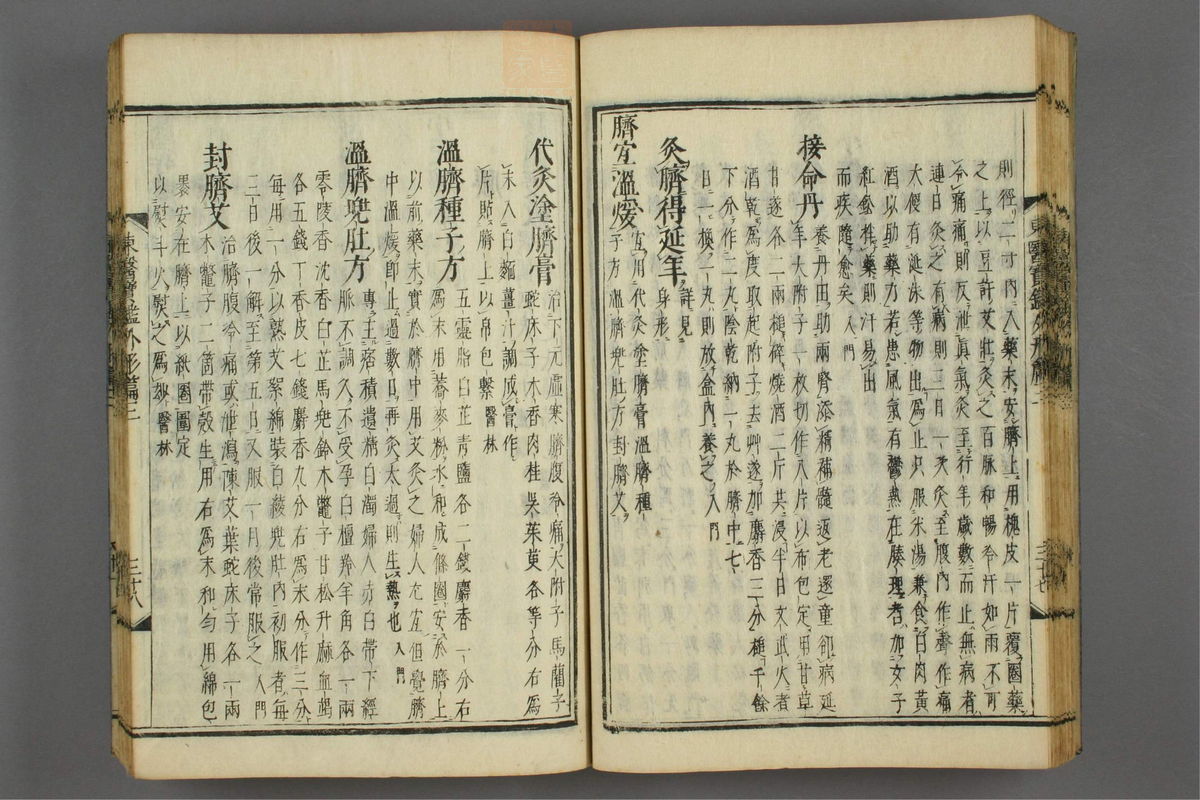 則徑二寸內入藥末安臍上用槐皮一片覆圈藥
之上以豆許艾壯灸之百脉和暢冷汗如雨不可
令痛痛則反泄眞氣灸至行年歲數而止無病者
連日灸之有病則三日一次灸至腹內作聲作痛
大便有涎沫等物出爲止只服米湯兼食白肉黃
酒以助藥力若患風氣有鬱熱在腠理者加女子
紅鉛拌藥則汗易出
而疾隨愈矣 入門
接命丹 養丹田助兩腎添精補髓返老還童却病延
年大附子一枚切作八片以布包定用甘草
甘遂各二兩槌碎燒酒二斤共浸半日文武火煮
酒乾爲度取起附子去艸遂加麝香三分槌千餘
下分作二丸陰乾納一丸於臍中七
日一換一丸則放盒內養之 入門
灸臍得延年 詳見
身形
臍宜溫煖 宜用代灸塗臍膏溫臍種
子方溫臍兜肚方封臍艾
東醫寶鑑外形篇三
三十七
代灸塗臍膏 治下元虛寒臍腹冷痛大附子馬藺子
蛇床子木香肉桂吳茱萸各等分右爲
末入白麵薑汁調成膏作
片貼臍上以帛包繫 醫林
溫臍種子方 五靈脂白芷靑鹽各二錢麝香一分右
爲末用蕎麥粉水和成條圈安於臍上
以前藥末實於臍中用艾灸之婦人尤宜但覺臍
中溫煖卽止過數日再灸太過則生熱也 入門
溫臍兜肚方 專主痞積遺精白濁婦人赤白帶下經
脉不調久不受孕白檀羚羊角各一兩
零陵香沈香白芷馬兜鈴木鼈子甘松升麻血竭
各五錢丁香皮七錢麝香九分右爲末分作三分
每用一分以熟艾絮綿裝白綾兜肚內初服者每
三日後一解至第五日又服一月後常服之 入門
封臍艾 治臍腹冷痛或泄瀉陳艾葉蛇床子各一兩
木鼈子二箇帶殼生用右爲末和勻用綿包
裹安在臍上以紙圈圍定
以熨斗火熨之爲妙 醫林
東醫寶鑑外形篇三
三十八